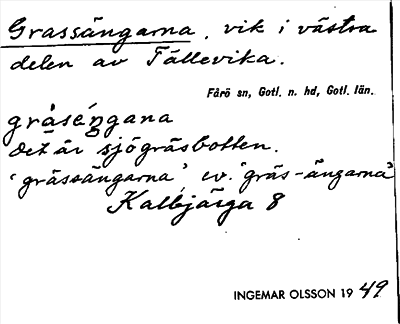 Grassängarna, vik i västra
delen av Tällevika.
Fårö sn, Gotl. n. hd, Gotl. län.
gråséŋgana
det är sjögräsbotten.
'grässängarna', ev. 'gräs-ängarna'
Kalbjärga 8
INGEMAR OLSSON 1949